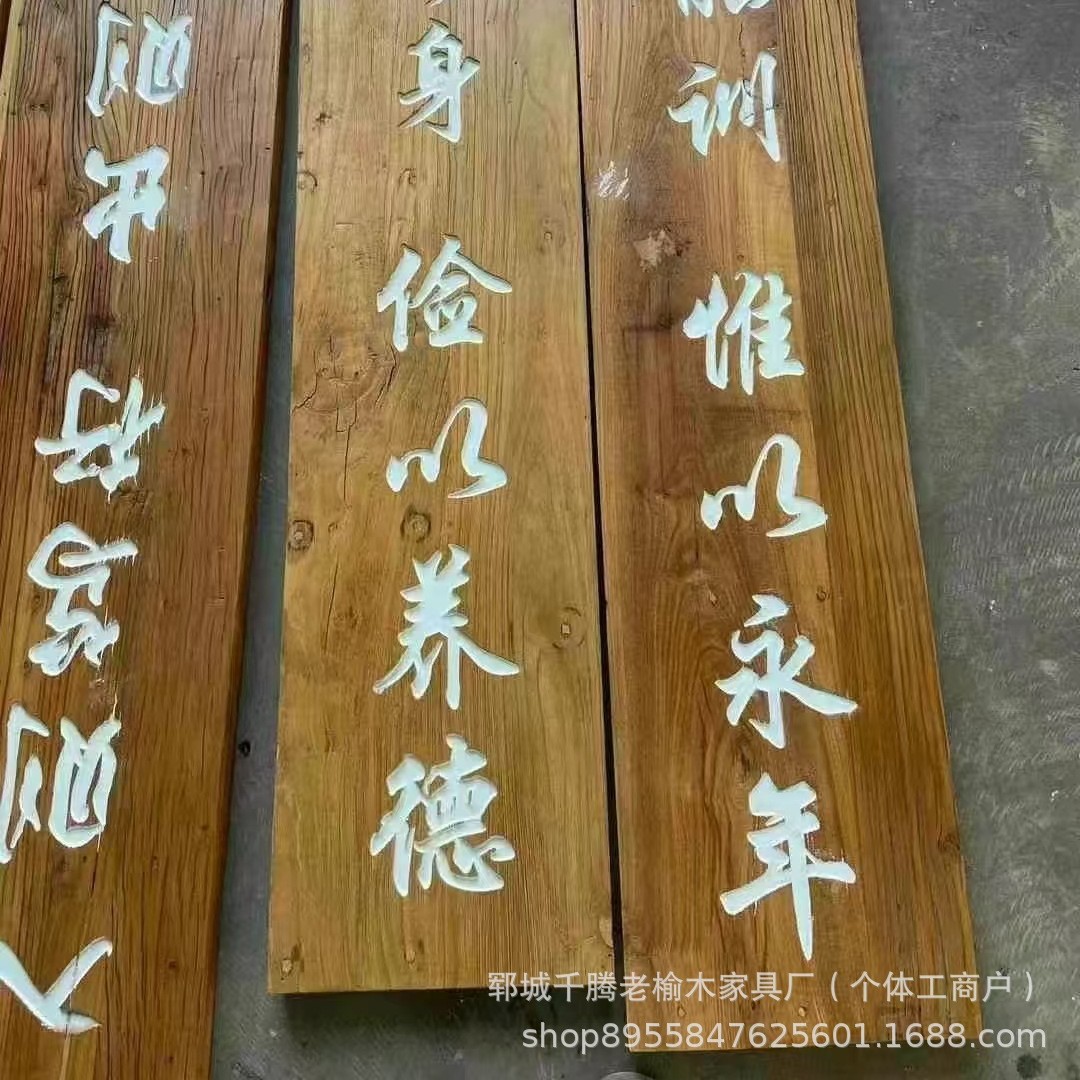 训惟以永年
身俭以养德
入则笃行出则
郓城千腾老榆木家具厂（个体工商户）
shop8955847625601.1688.com